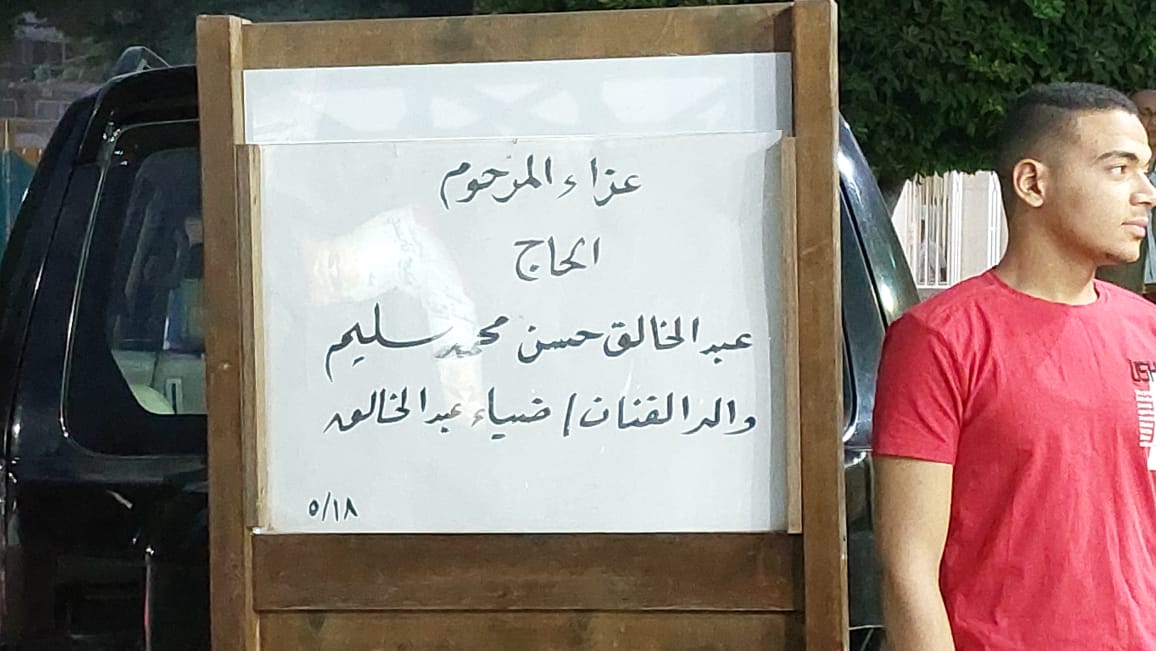 عزاء المرحوم
الحاج
عبد الخالق حسن محمد سليم
والد الفنان / ضياء عبد الخالق
١٨/٥